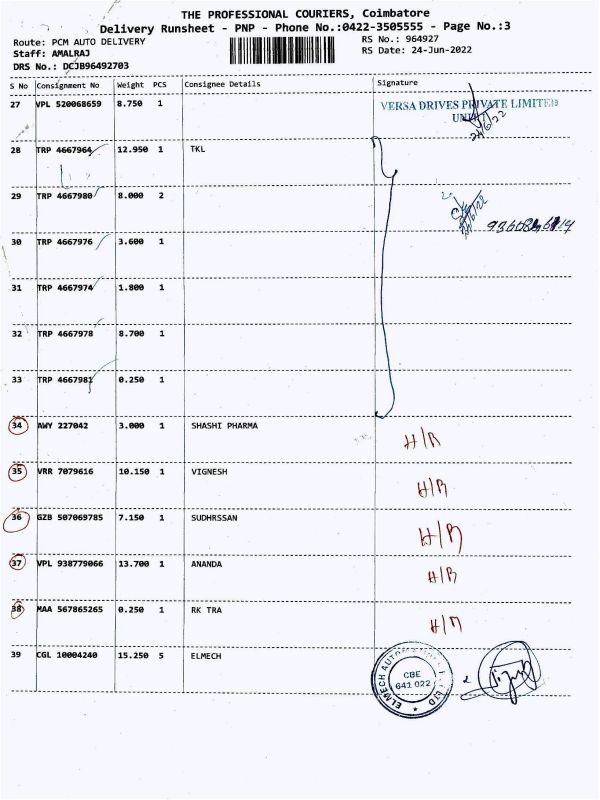 THE PROFESSIONAL COURIERS, Coimbatore
Delivery Runsheet - PNP - Phone No.:0422-3505555 - Page No.:3
Route: PCM AUTO DELIVERY
RS No.: 964927
Staff: AMALRAJ
RS Date: 24-Jun-2022
DRS No.: DCJB96492703
S No Consignment No Weight PCS Consignee Details Signature
27 VPL 520068659 8.750 1 VERSA DRIVES PRIVATE LIMITED
24/6/22
28 TRP 4667964 12.950 1 TKL
29 TRP 4667980 8.000 2
24/6/22
30 TRP 4667976 3.600 1
31 TRP 4667974 1.800 1
32 TRP 4667978 8.700 1
33 TRP 4667981 0.250 1
34 AWY 227042 3.000 1 SHASHI PHARMA H/R
35 VRR 7079616 10.150 1 VIGNESH H/R
36 GZB 507069785 7.150 1 SUDHRSSAN H/R
37 VPL 938779066 13.700 1 ANANDA H/R
38 MAA 567865265 0.250 1 RK TRA H/R
39 CGL 10004240 15.250 5 ELMECH
ELMECH
CBE
641 022
LTD